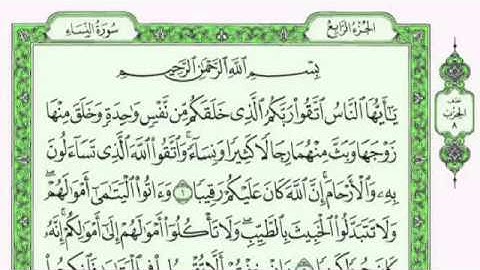 سُورَةُ النِّسَاءِ
الجُزْءُ الرَّابِعُ
بِسْمِ اللَّهِ الرَّحْمَٰنِ الرَّحِيمِ
يَٰٓأَيُّهَا النَّاسُ اتَّقُوا رَبَّكُمُ الَّذِى خَلَقَكُم مِّن نَّفْسٍ وَٰحِدَةٍ وَخَلَقَ مِنْهَا
زَوْجَهَا وَبَثَّ مِنْهُمَا رِجَالًا كَثِيرًا وَنِسَآءً وَاتَّقُوا اللَّهَ الَّذِى تَسَآءَلُونَ
بِهِۦ وَالْأَرْحَامَ إِنَّ اللَّهَ كَانَ عَلَيْكُمْ رَقِيبًا ١ وَءَاتُوا الْيَتَٰمَىٰٓ أَمْوَٰلَهُمْ
وَلَا تَتَبَدَّلُوا الْخَبِيثَ بِالطَّيِّبِ وَلَا تَأْكُلُوٓا أَمْوَٰلَهُمْ إِلَىٰٓ أَمْوَٰلِكُمْ إِنَّهُۥ
الحِزْبُ
٨